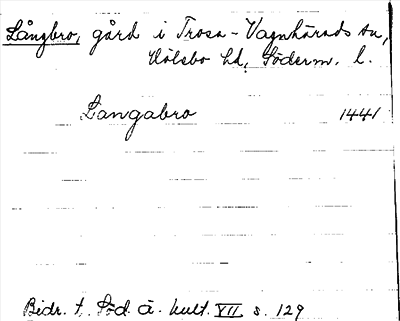 Långbro, gård i Trosa-Vagnhärads sn,
Hölebo hd, Söderm. l.
Langabro 1441
Bidr. t. Söd. ä. kult. VII s. 129